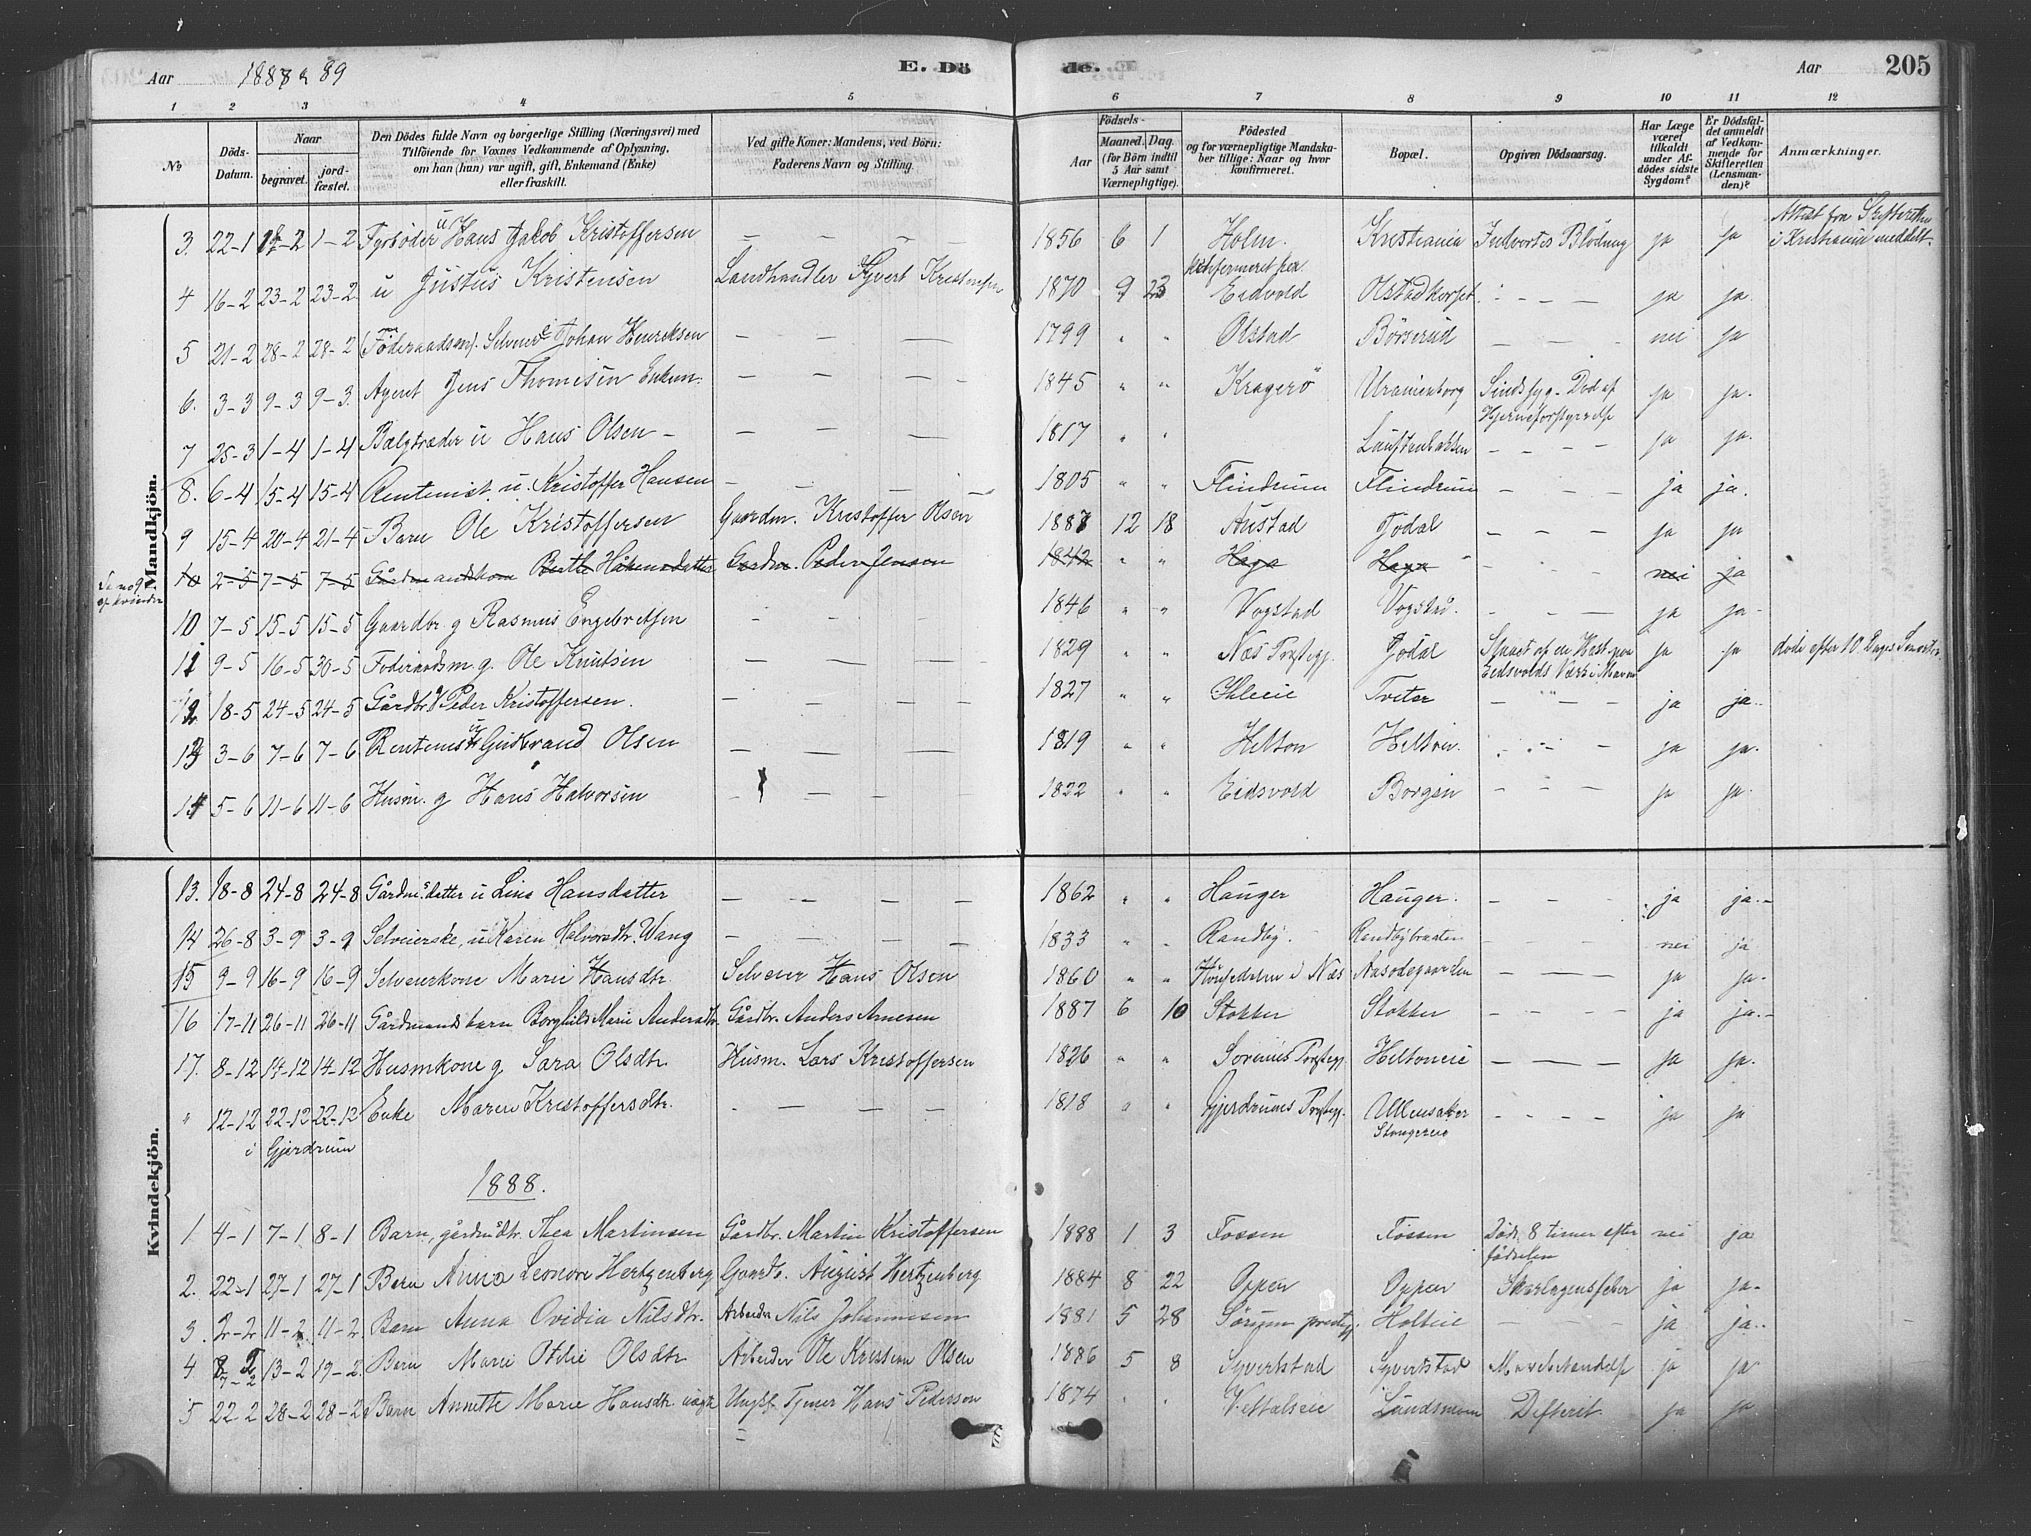 Aar 1887 & 89 E. Dö de. Aar 205
1 2 3 4 5 6 7 8 9 10 11 12
No. Döds-Datum. Naar begravet. jordfæstet. Den Dödes fulde Navn og borgerlige Stilling (Næringsvei) med Tilföiende for Voxnes Vedkommende af Oplysning, om han (hun) var ugift, gift, Enkemand (Enke) eller fraskilt. Ved gifte Koner: Mandens, ved Börn: Faderens Navn og Stilling. Födsels- Aar Maaned. Dag. (for Börn indtil 5 Aar samt Værnepligtige). Födested og for værnepligtige Mandskaber tillige: Naar og hvor konfirmeret. Bopæl. Opgiven Dödsaarsag. Har Læge været tilkaldt under Afdödes sidste Sygdom? Er Dödsfaldet anmeldt af Vedkommende for Skifteretten (Lensmanden)? Anmærkninger.
Mandkjön.
3. 22-1 1-2 1-2 Fyrbøder u Hans Jakob Kristoffersen — — — — 1856 6 1 Holm. Kristiania Indvortes Blödning ja ja Attest fra Skifteretten i Kristiania meddelt.
4 16-2 23-2 23-2 u Justus Kristensen Landhandler Syvert Kristensen 1870 9 23 Eidsvold Olstadkorset - - - ja ja.
5 21-2 28-2 28-2 Föderaadsm. Selveier Johan Henriksen — — — 1799 " " Olstad Börserud — — — nei ja
6. 3-3 9-3 9-3. Agent Jens Thomesen Enkem: — — — - 1845 " " Kragerö Uranienborg Sindssyg - Död af Hjerneforstyrrelse ja ja.
7 25-3 1-4 1-4 Bælgtræder u Hans Olsen - — — — 1817 " " - - - ja ja.
8. 6-4 15-4 15-4 Rentenist. u. Kristoffer Hansen — — — — 1805 " " Flindrum Flindrum - - - ja ja.
9 15-4 20-4 21-4 Barn Ole Kristoffersen Gaardm. Kristoffer Olsen 1887 12 18 Austad Jödal - - - ja ja
10 2-5 7-5 7-5 Gårdmandskone Berthe Håkensdatter Gårdm. Peder Jensen 1842 " " Haga Haga nei ja
10 7-5 15-5 15-5 Gaardbr. g Rasmus Engebretsen - — — — 1846 " " Vogstad Vogstad. - - - ja ja -
11 9-5 16-5 30-5 Föderaadsm. g. Ole Knutsen — — — — 1829 " " Næs Præstegj. Jödal Slaaet af en Hest paa Eidsvolds Værk i Maven ja ja döde efter 10 Dages
12 18-5 24-5 24-5 Gårdbr. Peder Kristoffersen. - — — — 1827 " " Tveter — — — ja ja..
13 3-6 7-6 7-6 Rentenist Gudbrand Olsen — — — — 1819 " " Helton Helton. - - - ja ja.
14 5-6 11-6 11-6 Husm. g Hans Halvorsen - — — 1822 " " Eidsvold Borgen - - - ja ja.
Kvindekjön.
13. 18-8 24-8 24-8 Gårdm.s datter u Lina Hansdatter — — — — 1862 " " Hauger Hauger. - - - ja ja.-
14 26-8 3-9 3-9 Selveierske, u Karen Halvorsdtr. Wang — — — — 1833 " " Randby. Randbybraaten - - - nei ja
15 9-9 16-9 16-9 Selveierkone Marie Hansdtr. Selveier Hans Olsen 1860 " " i Næs Aasodegaarden — — — ja ja.
16 17-11 26-11 26-11 Gårdmandsbarn Borghild Marie Andersdtr. Gårdbr. Anders Arnesen 1887 6 10 Stokker Stokker - - - - ja ja.-
17. 8-12 14-12 14-12 Husmkone g Sara Olsdtr. Husm. Lars Kristoffersen 1826 " " Sörums Præstegj. Heltoneie — — — ja ja.
" 12-12 22-12 22-12 Enke Maren Kristoffersdtr. - — — - 1818 " " Gjerdrums Præstegj. Ullensaker Stangereie - - - - ja ja
i Gjerdrum
1888.
1. 4-1 7-1 8-1 Barn, gårdmdtr. Thea Martinsen Gårdbr. Martin Kristoffersen 1888 1 3 Fossem Fossen Död. 8 timer efter födselen nei ja
2. 22-1 27-1 27-1 Barn Anna Leonore Hertzenberg Gaardb. August Hertzenberg 1884 8 22 Oppen Oppen Skarlagensfeber ja ja-
3. 2-2 11-2 11-2 Barn Anna Ovidia Nilsdtr. Arbeider Nils Johannesen 1881 5 28 Sörum prestegj. Holteie - - - ja ja..
4 8-2 13-2 19-2. Barn Marie Otilie Olsdtr Arbeider Ole Kristian Olsen 1886 5 8 Syverstad Syverstad ja ja
5 22-2 28-2 28-2 Barn Annette Marie Hansdtr. uægte Ungk. Tjener Hans Pedersen 1874 " " Vettalseie Landsmoen Difterit. ja ja